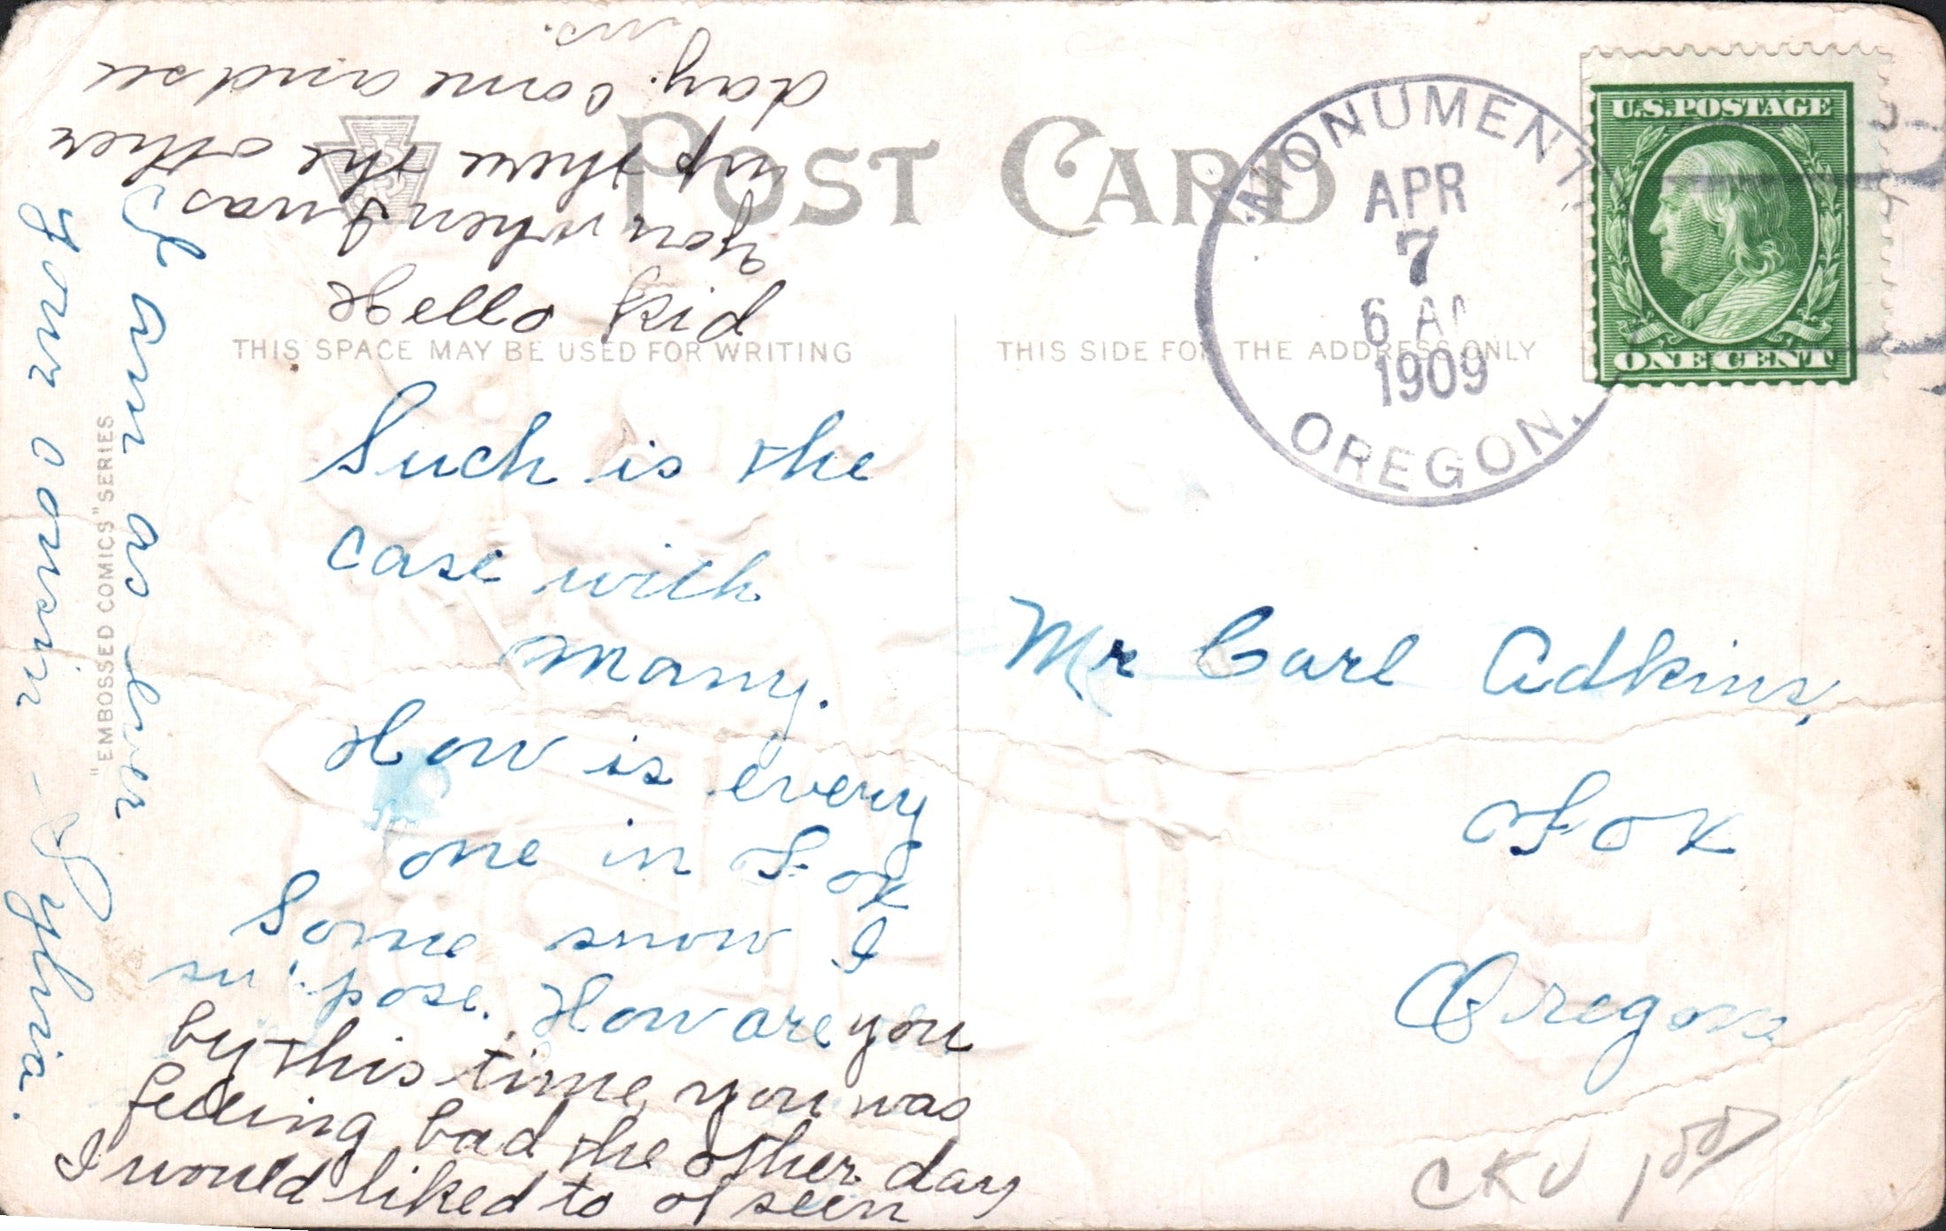 POST CARD
THIS SPACE MAY BE USED FOR WRITING
THIS SIDE FOR THE ADDRESS ONLY
"EMBOSSED COMICS" SERIES
MONUMENT
APR
7
6 A
1909
OREGON.
U.S. POSTAGE
ONE CENT
Such is the
case with
many.
How is every
one in Fox
Some snow I
su pose. How are you
by this time you was
feeling bad the other day
I would liked to of seen
you when I was
up there the other
day. Come and see
us.
Hello Kid
I am as ever
your cousin - Sylvia.
Mr Carl Adkins,
Fox
Oregon
CKU 100